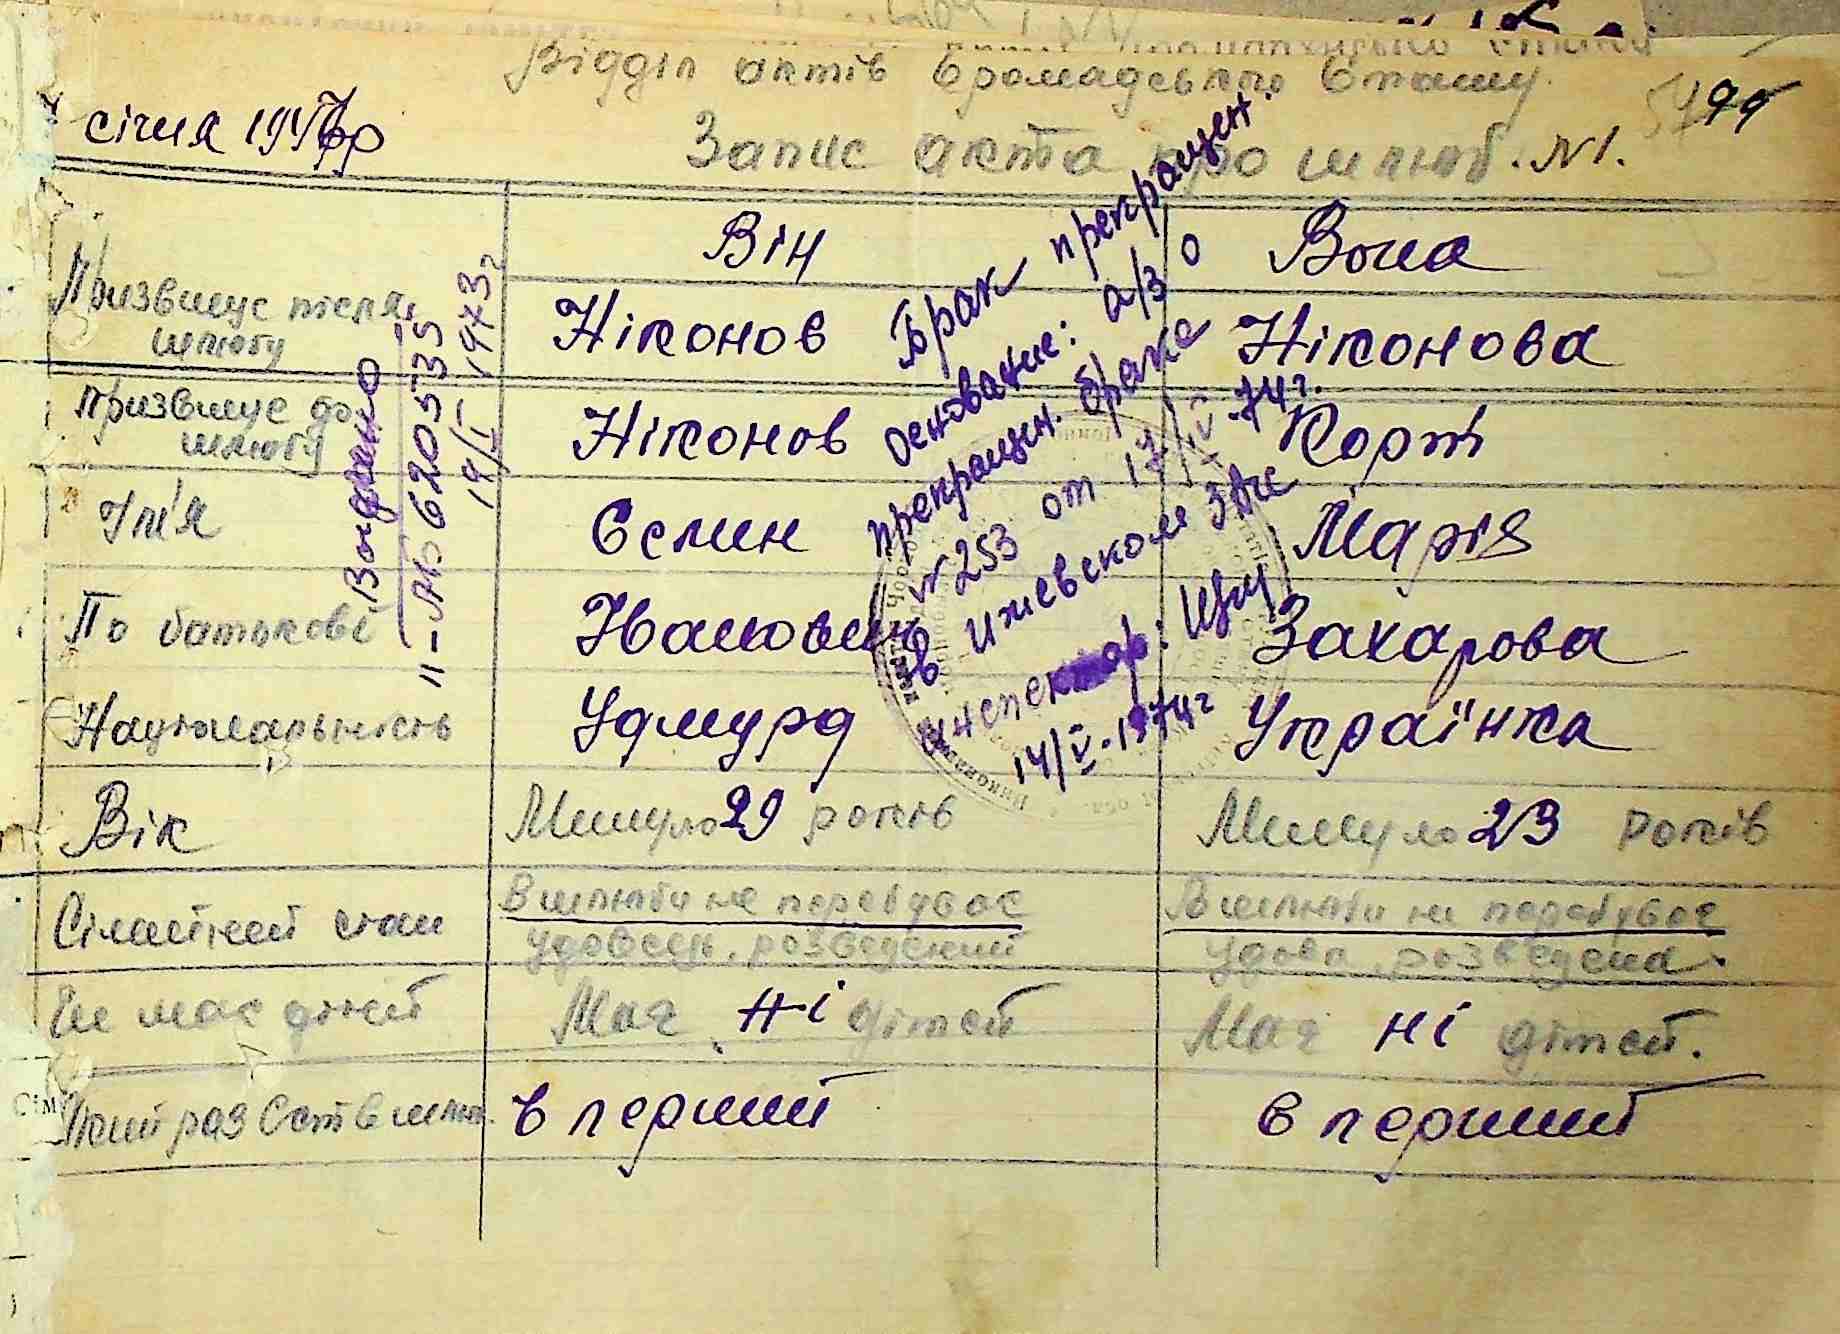 Відділ актів Громадського Стану.
січня 1947р
Запис акта про шлюб. №1.
99
Він Вона
Призвище після шлюбу Ніконов Ніконова
призвище до шлюбу Ніконов Корт
Ім'я Семен Марія
По батькові Иванович Захарова
Національність Удмурд Українка
Вік Минуло 29 років Минуло 23 років
Сімейний стан В шлюби не перебував В шлюби ни перебував
удовець, розведений удова, розведена.
Чи має дітей Має ні дітей Має ні дітей.
Який раз Вст в шлю. в перший в перший
Выдано
II-АБ 6205735
19/I 1973г
Брак прекращен.
Основание: а/з о
прекращен. брака
№ 253 от 17/IV-74г.
в Ижевском ЗАГС
Инспектор:
14/V-1974г